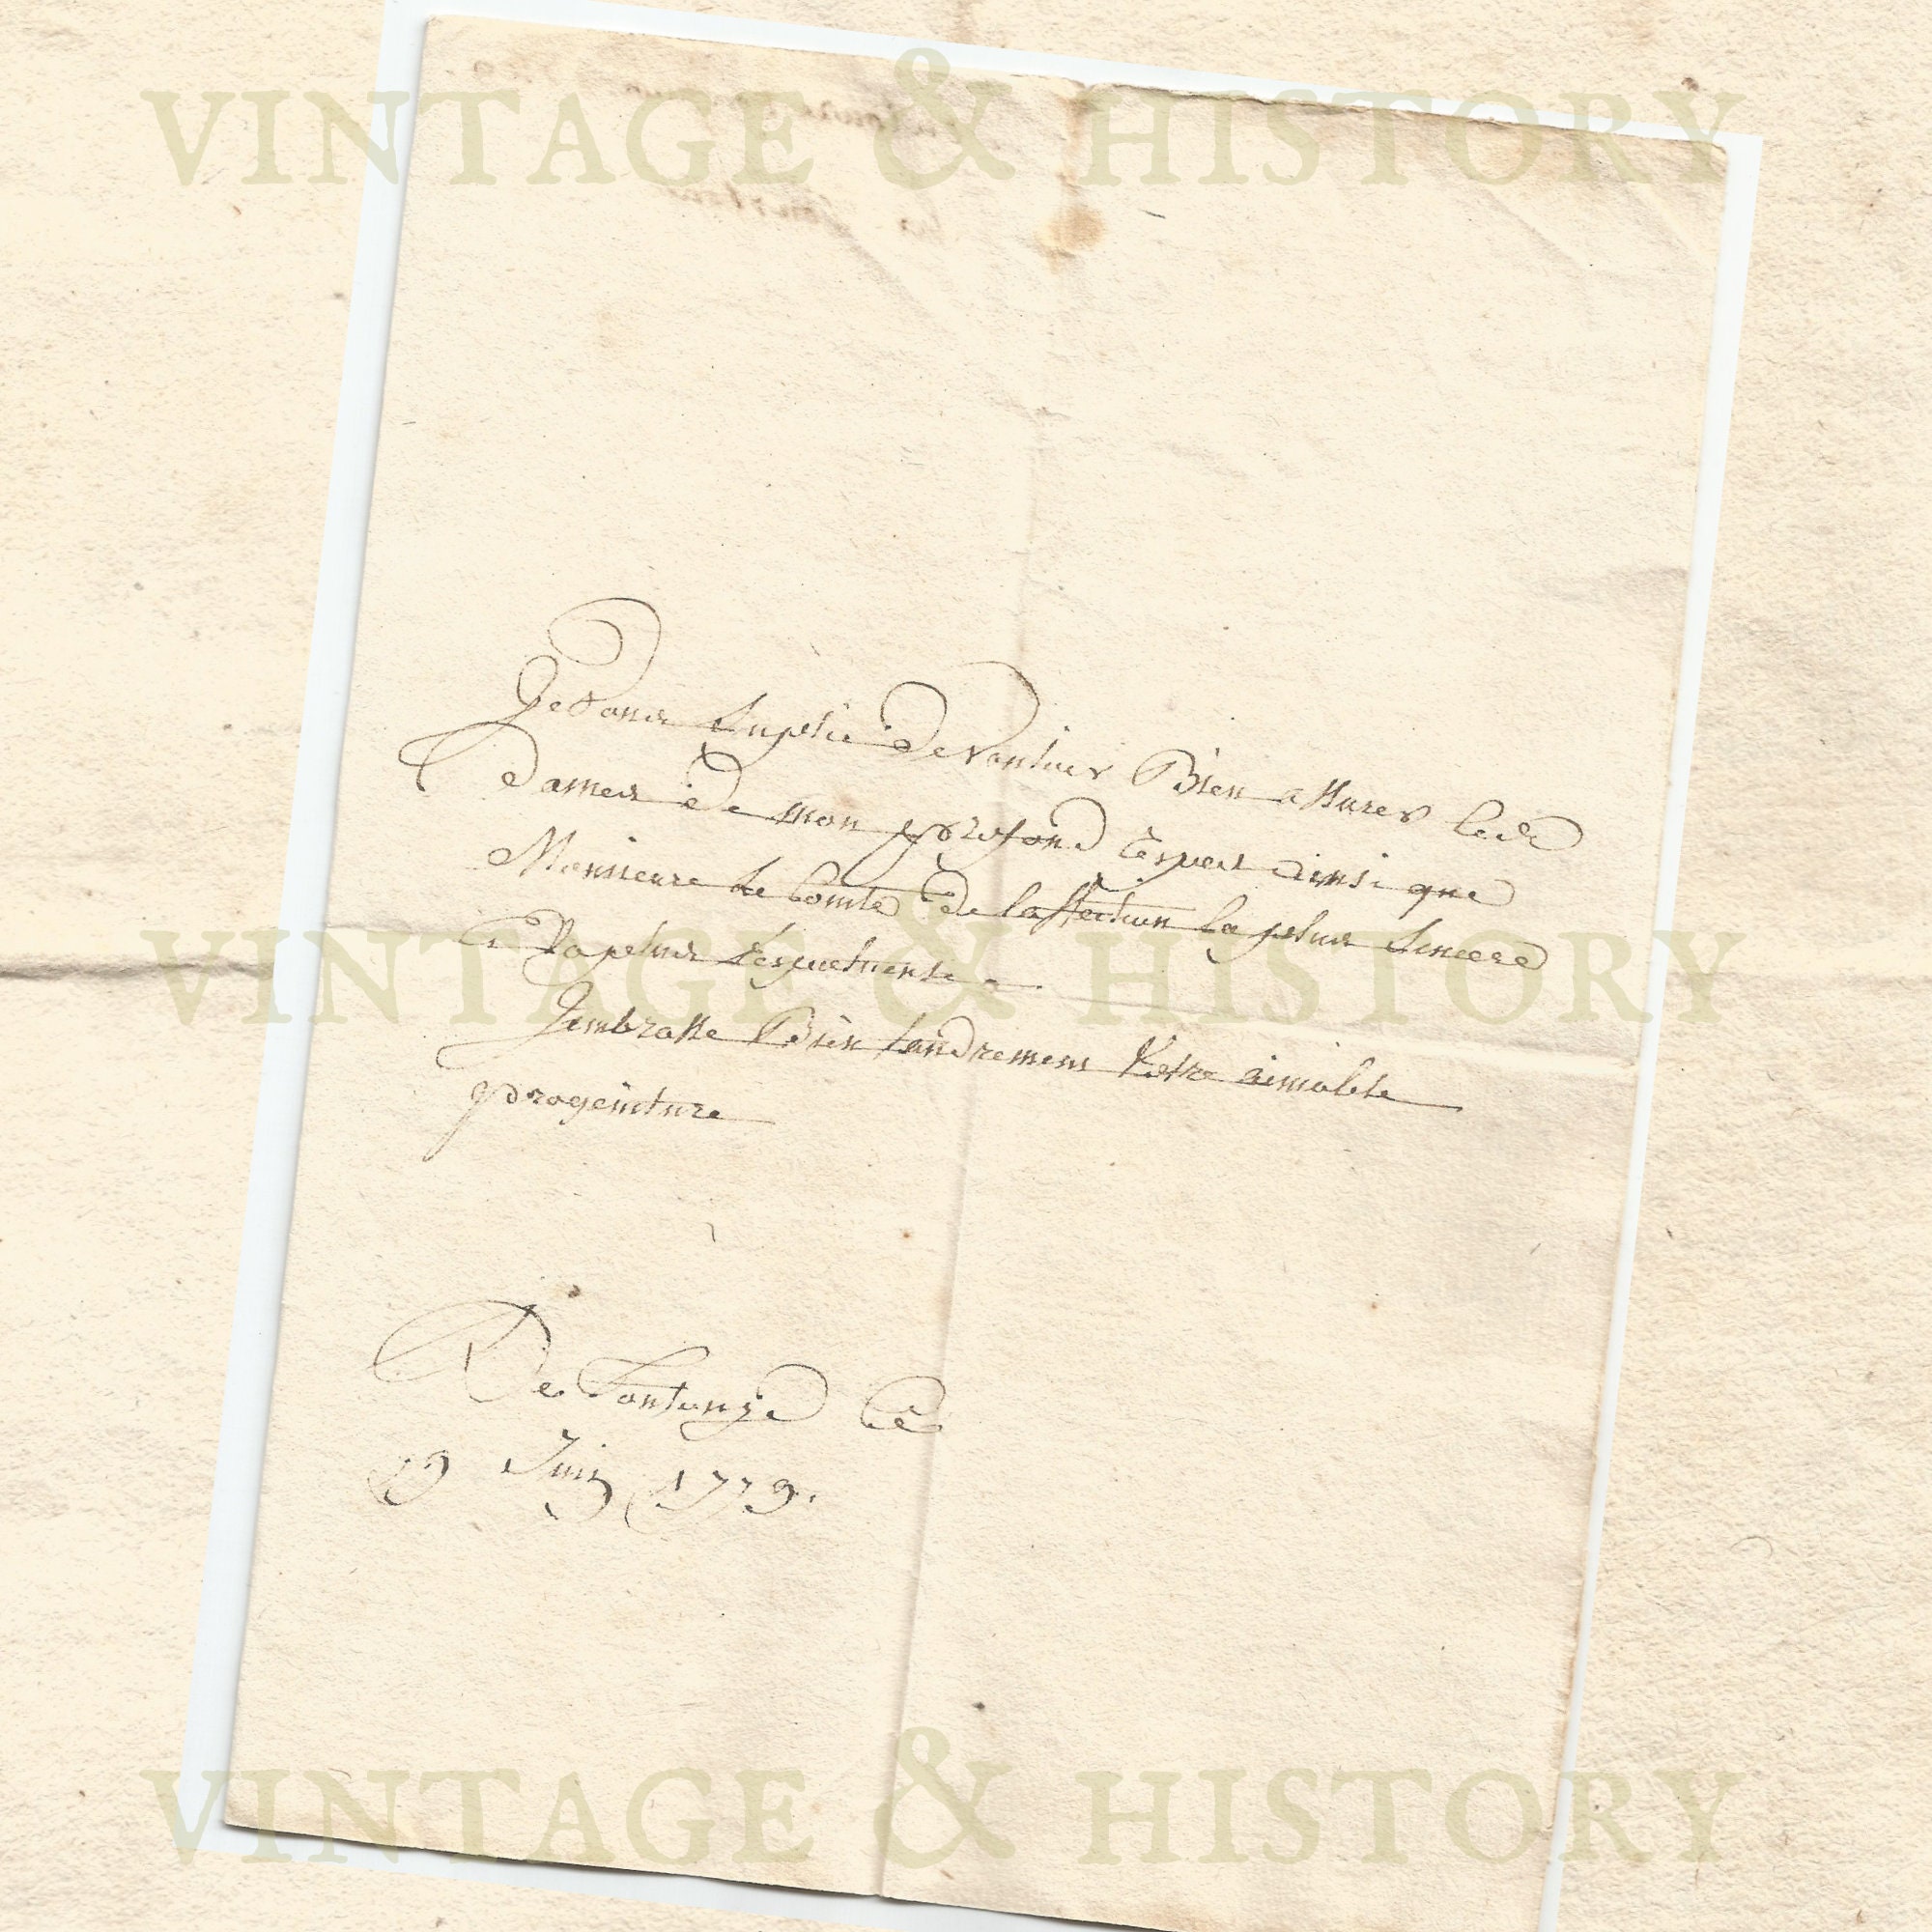 VINTAGE & HISTORY
Je vous suplie de vouloir Bien assurer les
Dames de mon profond respect ainsi que
Monsieur le Comte de laffection la plus sincere
et la plus respectueuse
Jembrasse Bien tandrement Votre aimable
progeniture
VINTAGE & HISTORY
De Fontange Ce
29 Juin 1779.
VINTAGE & HISTORY